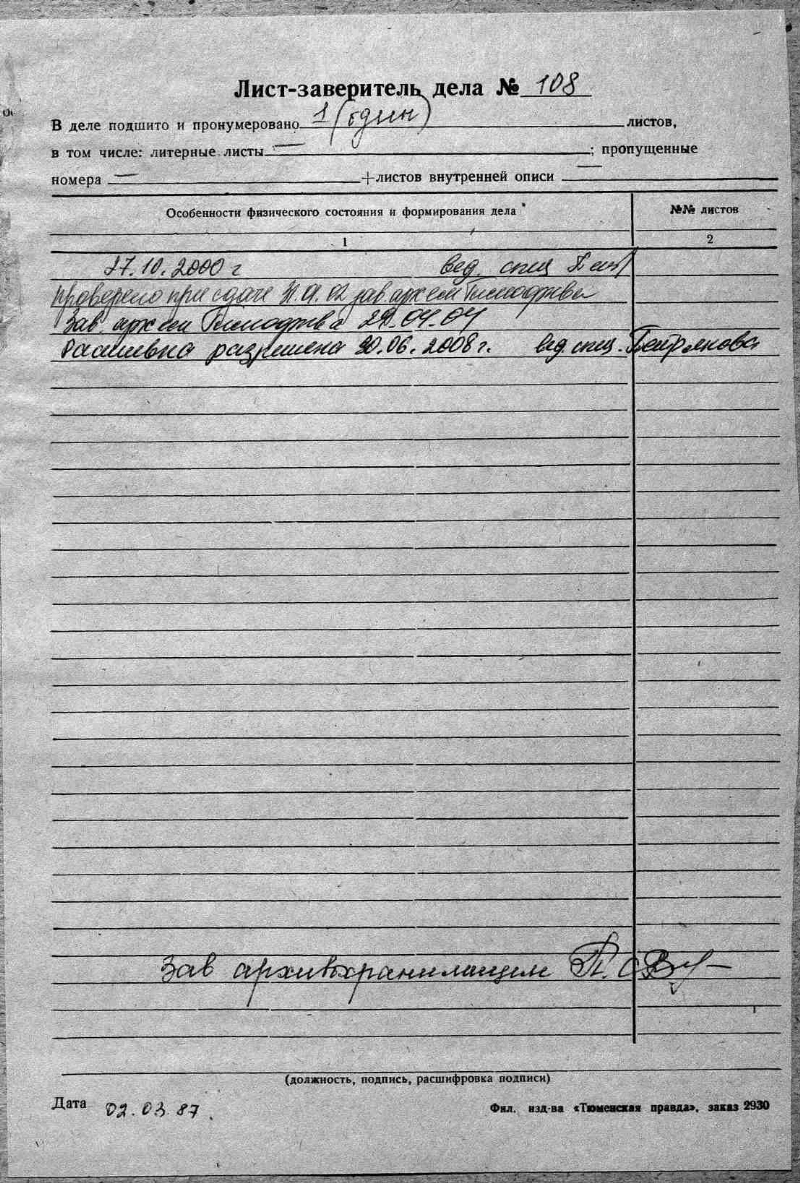 Лист-заверитель дела № 108
В деле подшито и пронумеровано 1 (один) листов,
в том числе: литерные листы — ; пропущенные
номера — +листов внутренней описи —
Особенности физического состояния и формирования дела
№№ листов
1
2
27.10.2000 г вед. спец
Проверено при сдаче зав арх
Зав. арх 29.04.04
Расшивка разрешена 30.06.2008 г. вед. спец.
Зав архивохранилищем
(должность, подпись, расшифровка подписи)
Дата 02.03.87.
Фил. изд-ва «Тюменская правда», заказ 2930